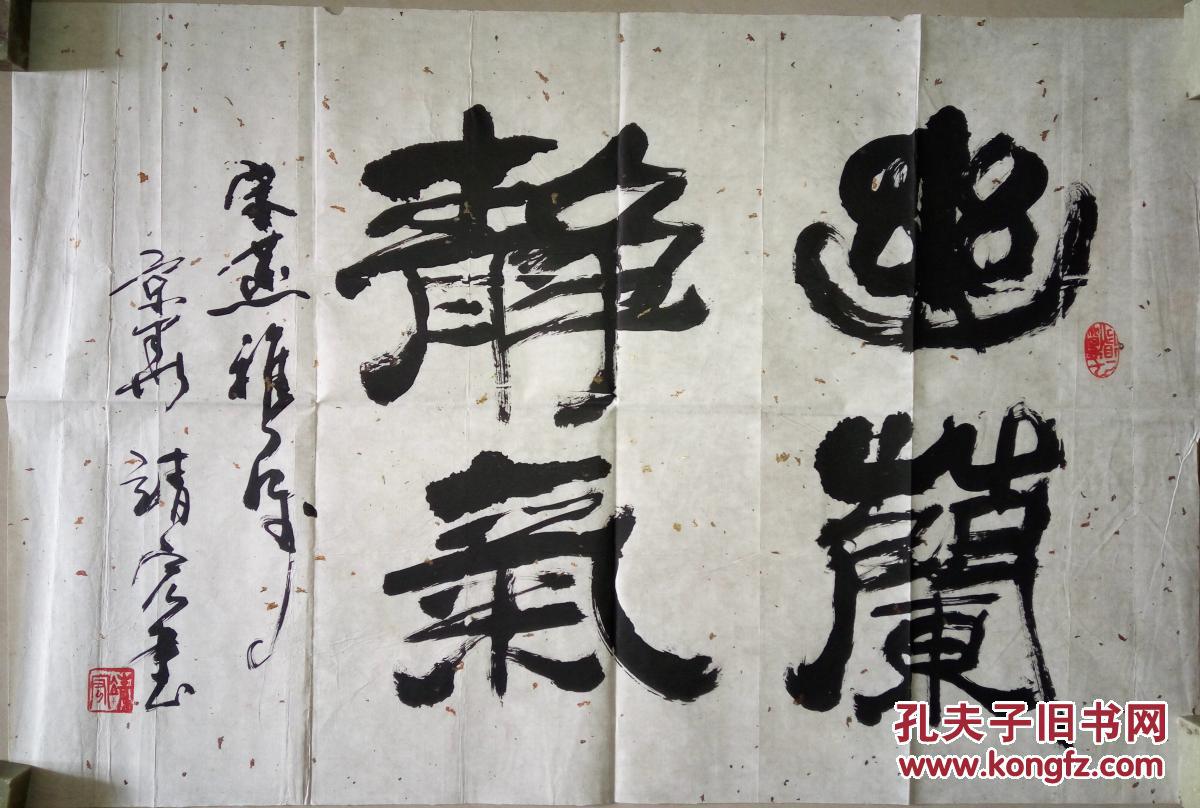 幽蘭
靜氣
雅属
京華 靖宏書
孔夫子旧书网
www.kongfz.com